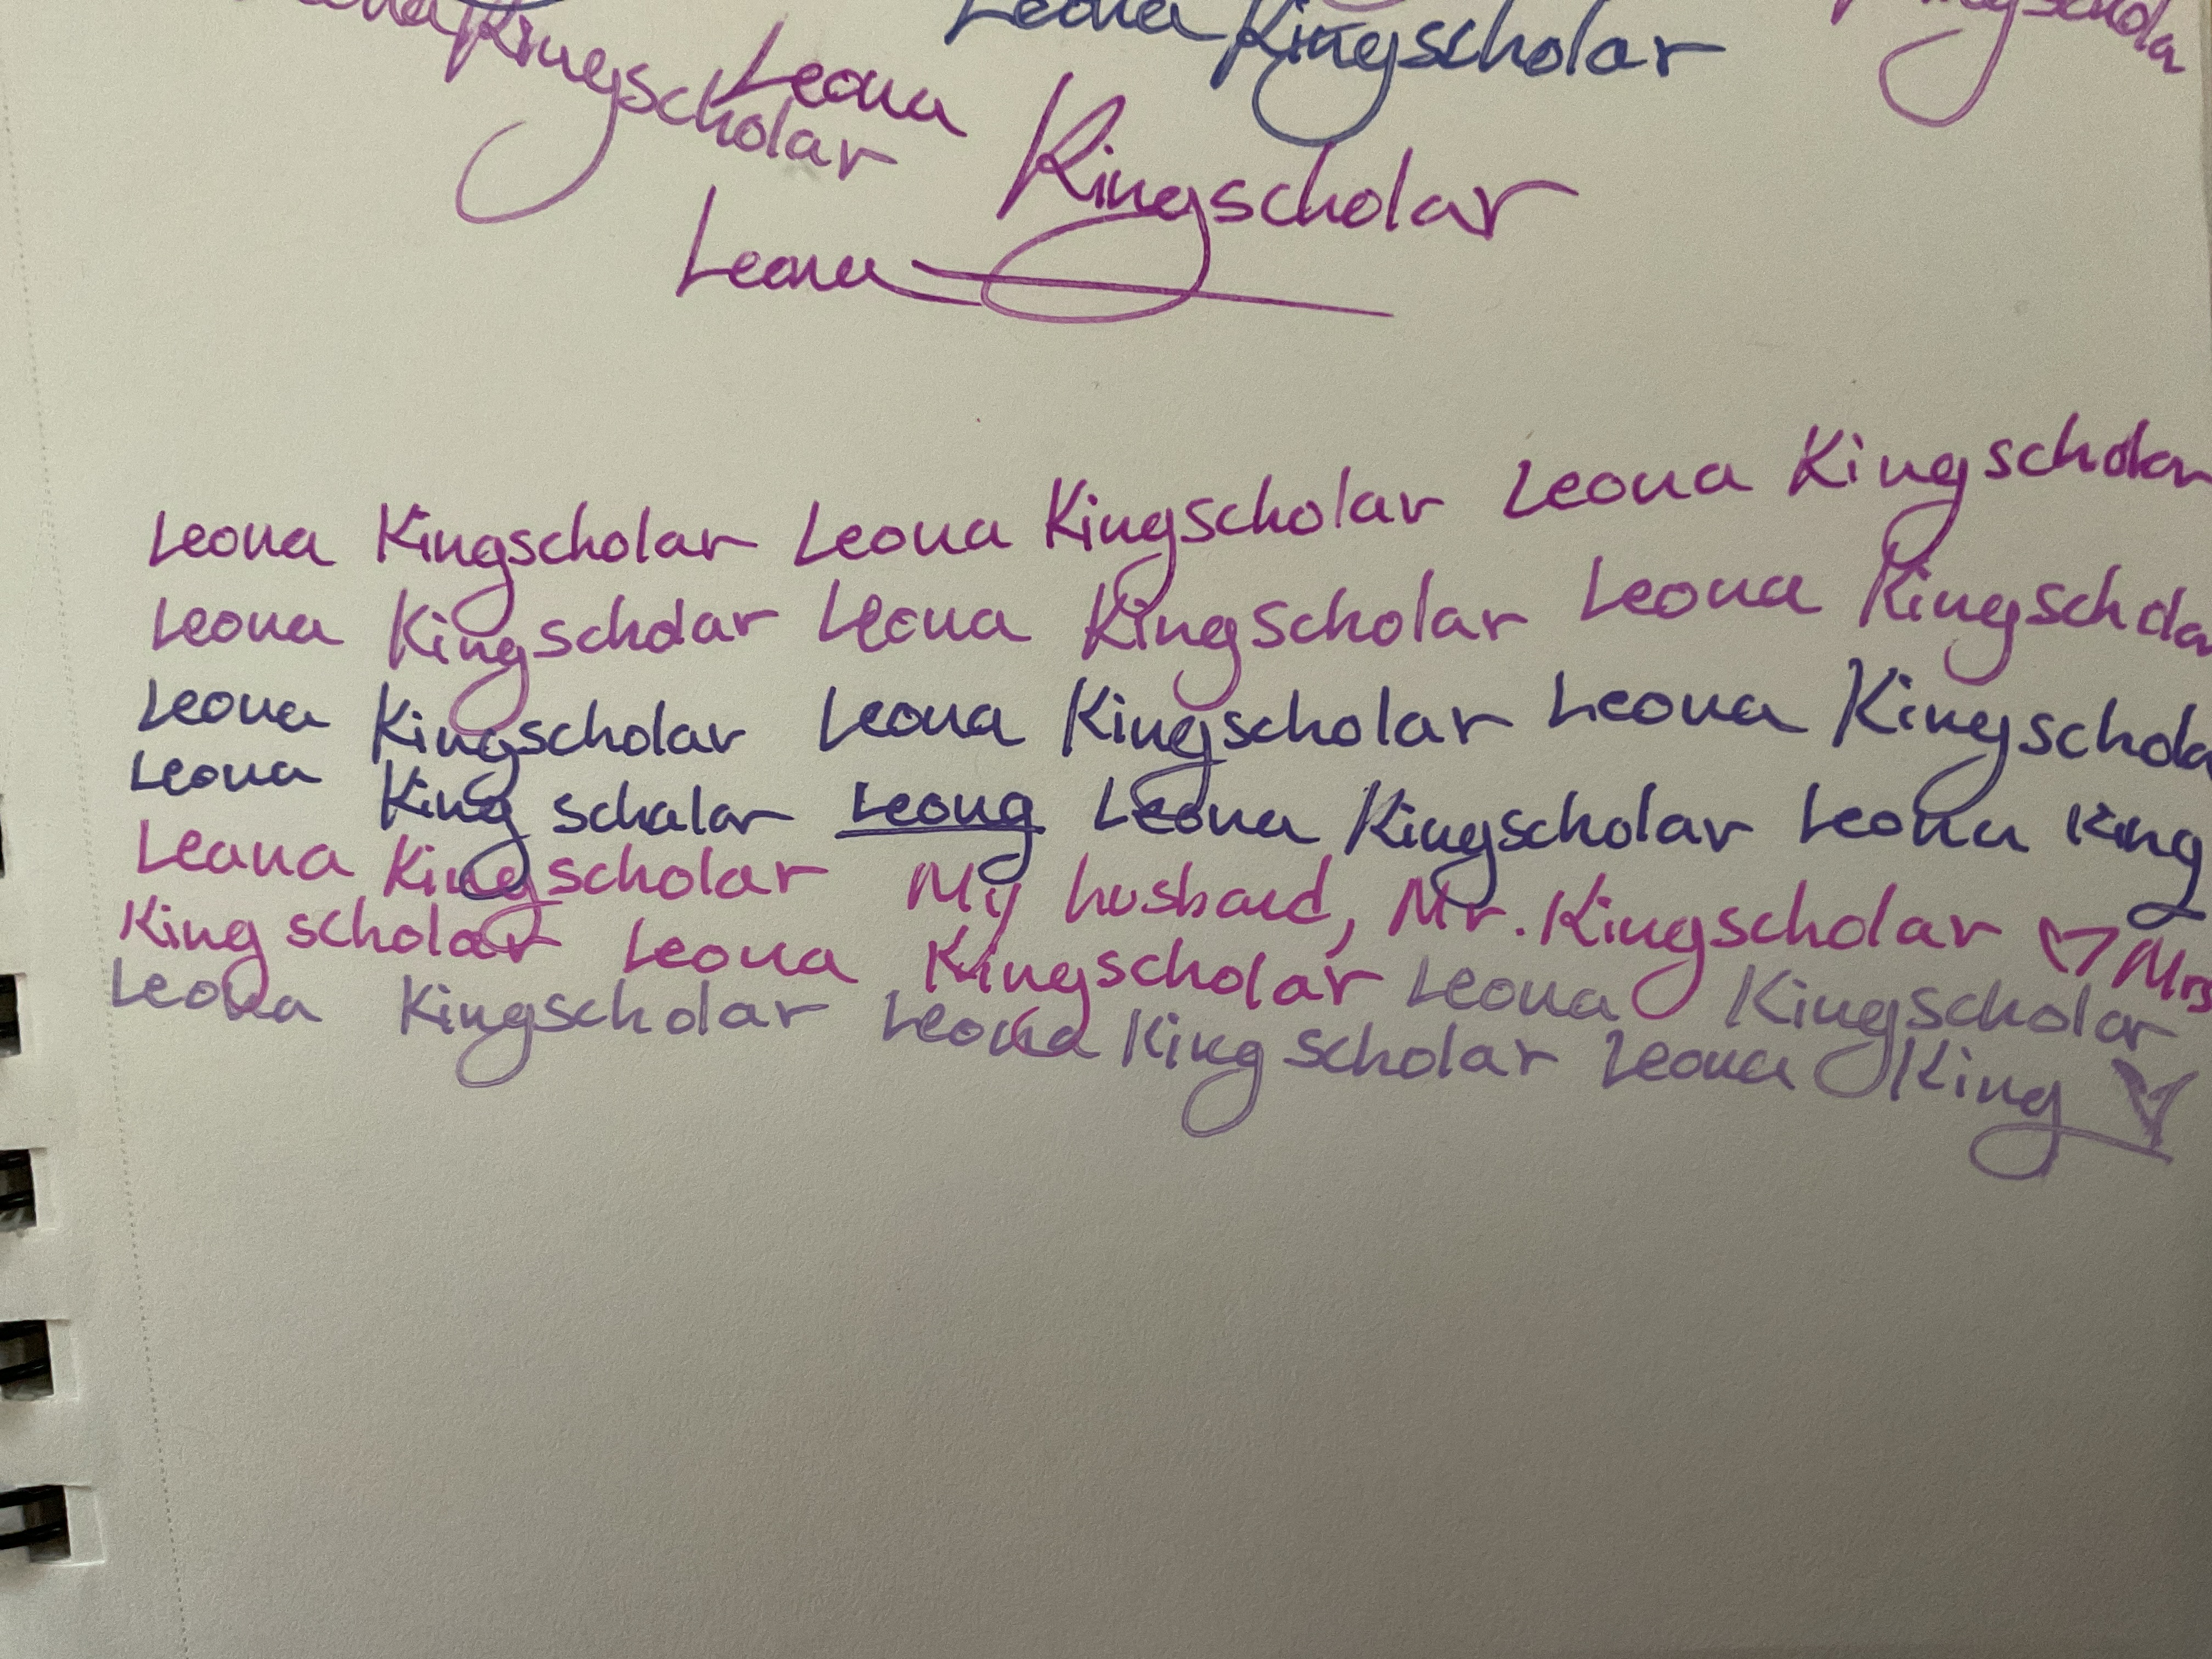 Kingscholar
Leona Kingscholar
Leona
Kingscholar
Leona
Leona Kingscholar Leona Kingscholar Leona Kingscholar
Leona Kingscholar Leona Kingscholar Leona Kingschola
Leona Kingscholar Leona Kingscholar Leona Kingschola
Leona King schalar Leong Leona Kingscholar Leona King
Leana Kingscholar My husband, Mr. Kingscholar ♡ Mrs
King scholar Leona Kingscholar Leona Kingscholar
Leona Kingscholar Leona King scholar Leona King ♥